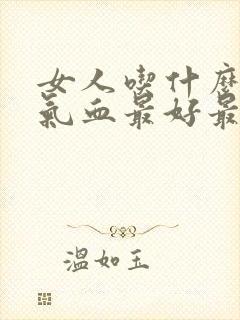 女人喫什麽
氣血最好最
溫如玉